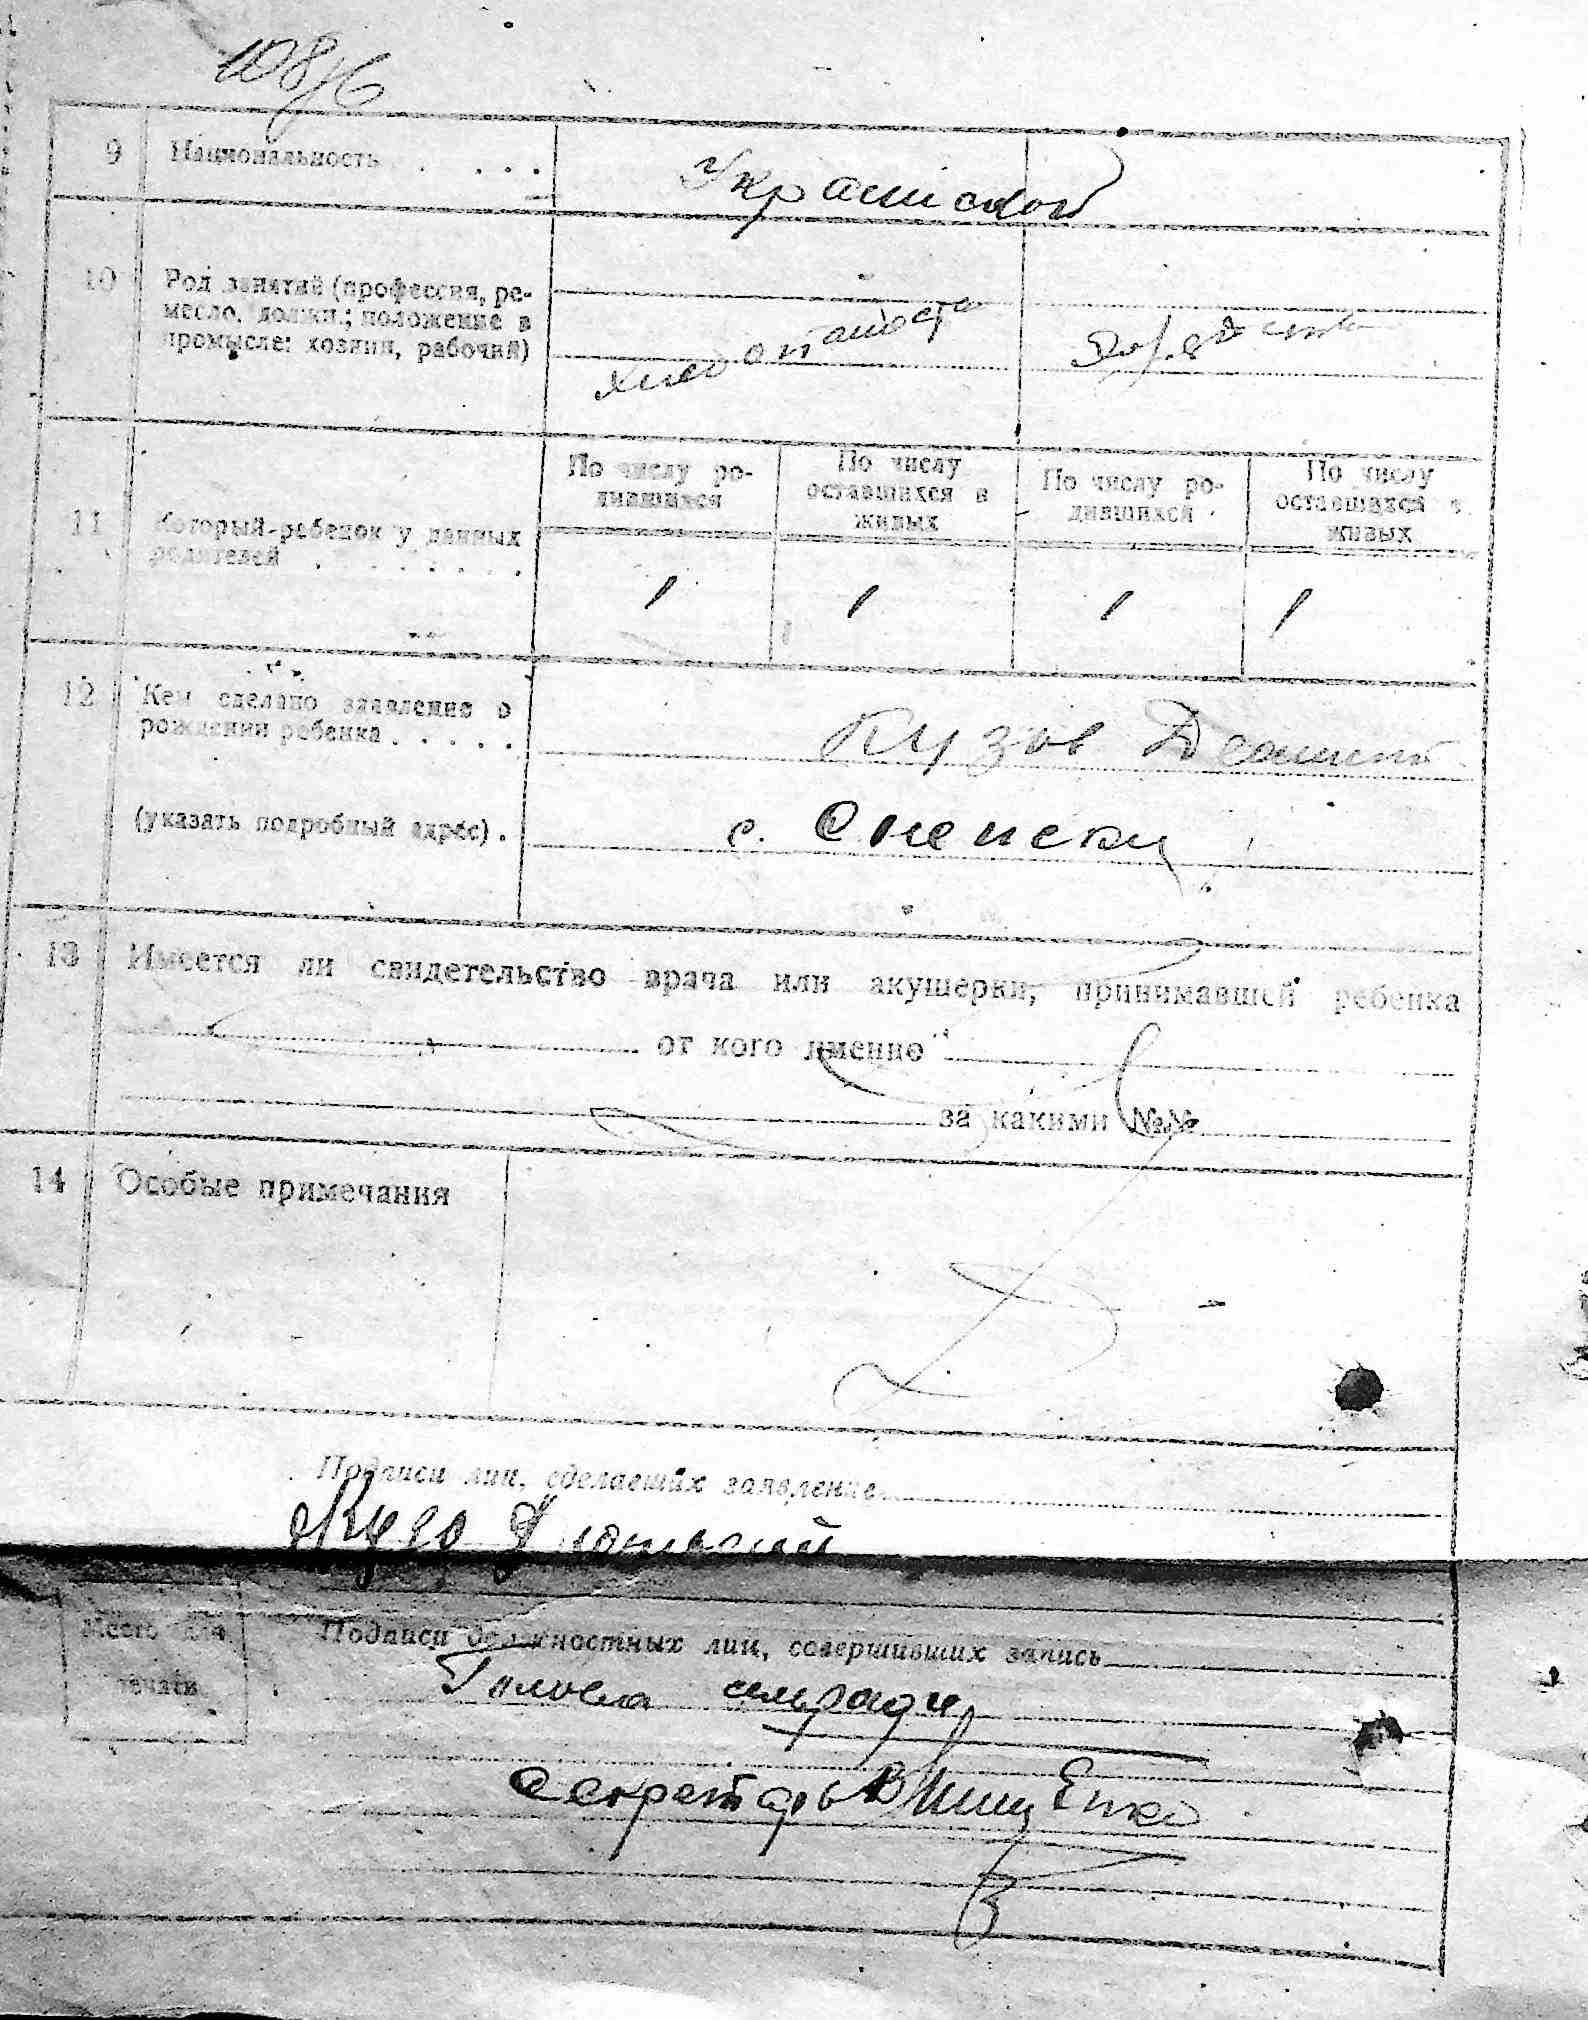 108/6
9 Национальность . . . . Украинской
10 Род занятий (профессия, ре-
месло, должн.; положение в
промысле: хозяин, рабочий)
11 Который ребенок у данных
родителей . . . . . . .
По числу ро-
дившихся
По числу
оставшихся в
живых
По числу ро-
дившихся
По числу
оставшихся в
живых
1 1 1 1
12 Кем сделано заявление о
рождении ребенка . . . . .
(указать подробный адрес) . с.
13 Имеется ли свидетельство врача или акушерки, принимавшей ребенка
от кого именно
за какими №№
14 Особые примечания
Подписи лиц, сделавших заявление
Место для
печати
Подписи должностных лиц, совершивших запись
Голова сільради
Секретарь